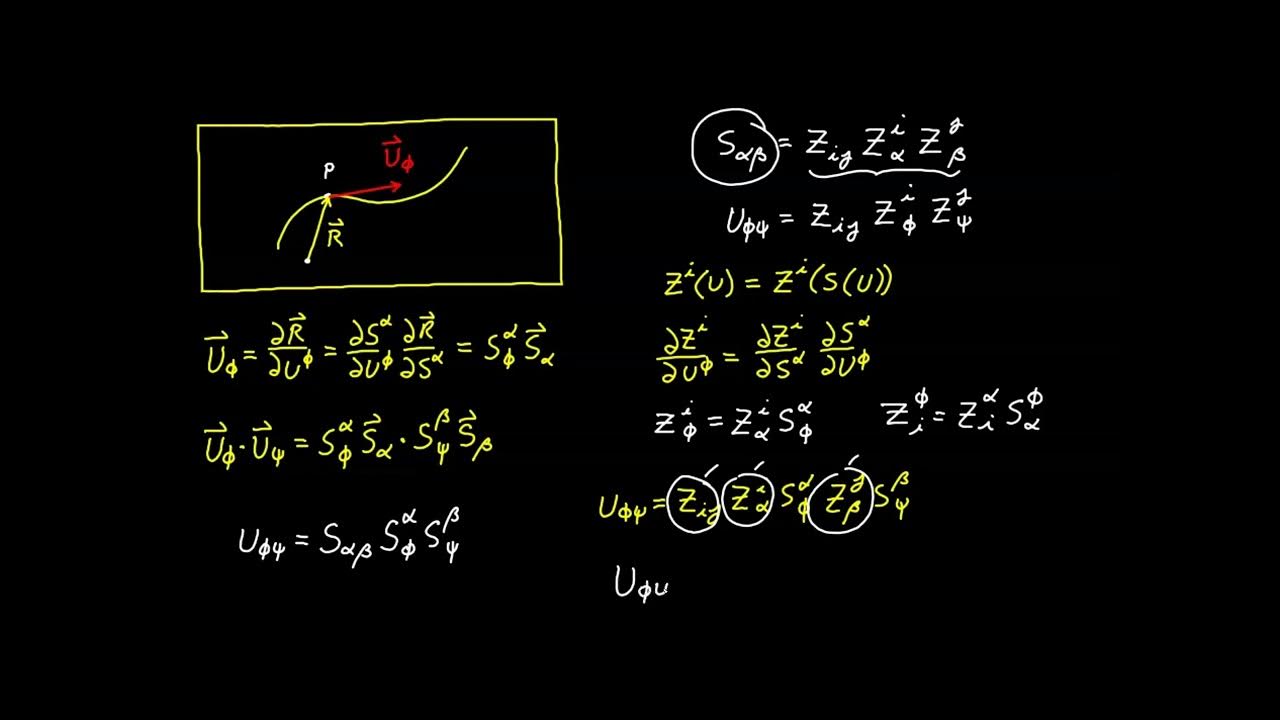 P
U⃗_ϕ
R⃗
U⃗_ϕ = ∂R⃗/∂U^ϕ = ∂S^α/∂U^ϕ ∂R⃗/∂S^α = S^α_ϕ S⃗_α
U⃗_ϕ · U⃗_ψ = S^α_ϕ S⃗_α · S^β_ψ S⃗_β
U_ϕψ = S_αβ S^α_ϕ S^β_ψ
S_αβ = Z_ij Z^i_α Z^j_β
U_ϕψ = Z_ij Z^i_ϕ Z^j_ψ
Z^i(U) = Z^i(S(U))
∂Z^i/∂U^ϕ = ∂Z^i/∂S^α ∂S^α/∂U^ϕ
Z^i_ϕ = Z^i_α S^α_ϕ    Z^ϕ_i = Z^α_i S^ϕ_α
U_ϕψ = Z_ij Z^i_α S^α_ϕ Z^j_β S^β_ψ
U_ϕ